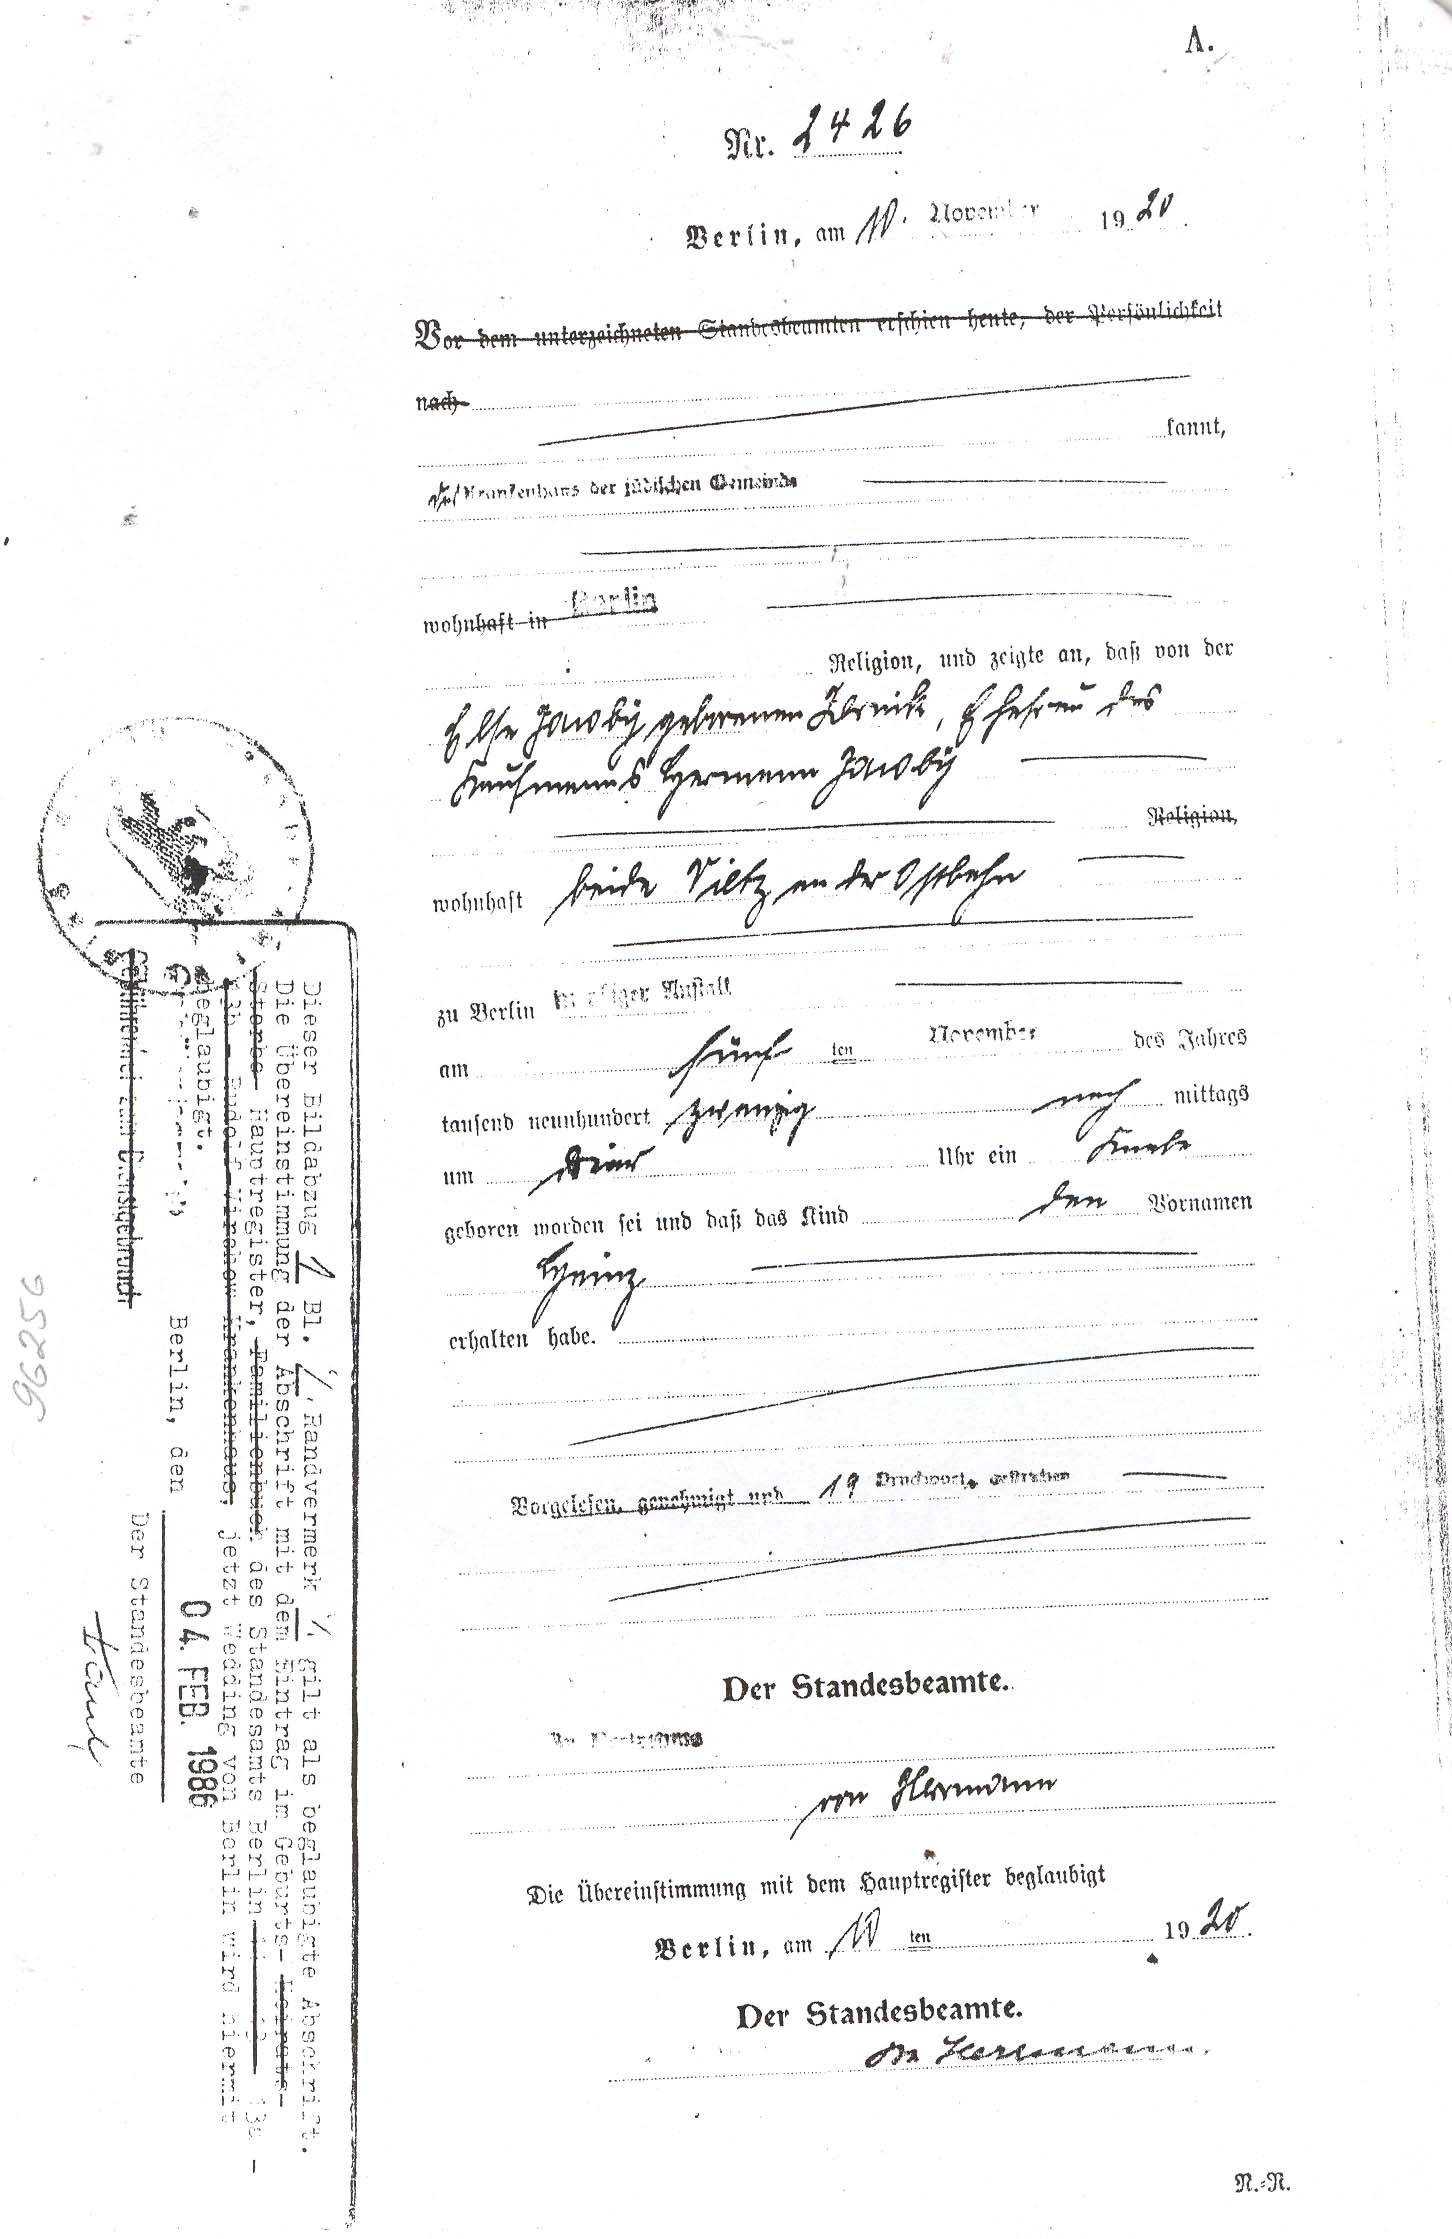 A.
Nr. 2426
Berlin, am 10. November 1920
Vor dem unterzeichneten Standesbeamten erschien heute, der Persönlichkeit
nach
kannt,
Das Krankenhaus der jüdischen Gemeinde
wohnhaft in Berlin
Religion, und zeigte an, daß von der
Else Jacoby geborenen, Ehefrau des
Kaufmanns Hermann Jacoby
Religion,
wohnhaft beide Vietz an der Ostbahn
zu Berlin in obiger Anstalt
am fünf ten November des Jahres
tausend neunhundert zwanzig nach mittags
um Uhr ein Knabe
geboren worden sei und daß das Kind den Vornamen
Heinz
erhalten habe.
Vorgelesen, genehmigt und 19 Druckworte gestrichen
Der Standesbeamte.
In Vertretung
von Herrmann
Die Übereinstimmung mit dem Hauptregister beglaubigt
Berlin, am 10 ten 1920.
Der Standesbeamte.
In Vertretung
von Herrmann.
N.=N.
Dieser Bildabzug 1 Bl. ./. Randvermerk ./. gilt als beglaubigte Abschrift.
Die Übereinstimmung der Abschrift mit dem Eintrag im Geburts- Heirats-
Sterbe- Hauptregister, Familienbuch des Standesamts Berlin 13a -
13b - Rudolf-Virchow-Krankenhaus, jetzt Wedding von Berlin wird hiermit
beglaubigt.
Gebührenfrei zum Dienstgebrauch
Berlin, den 04. FEB. 1986
Der Standesbeamte
96256